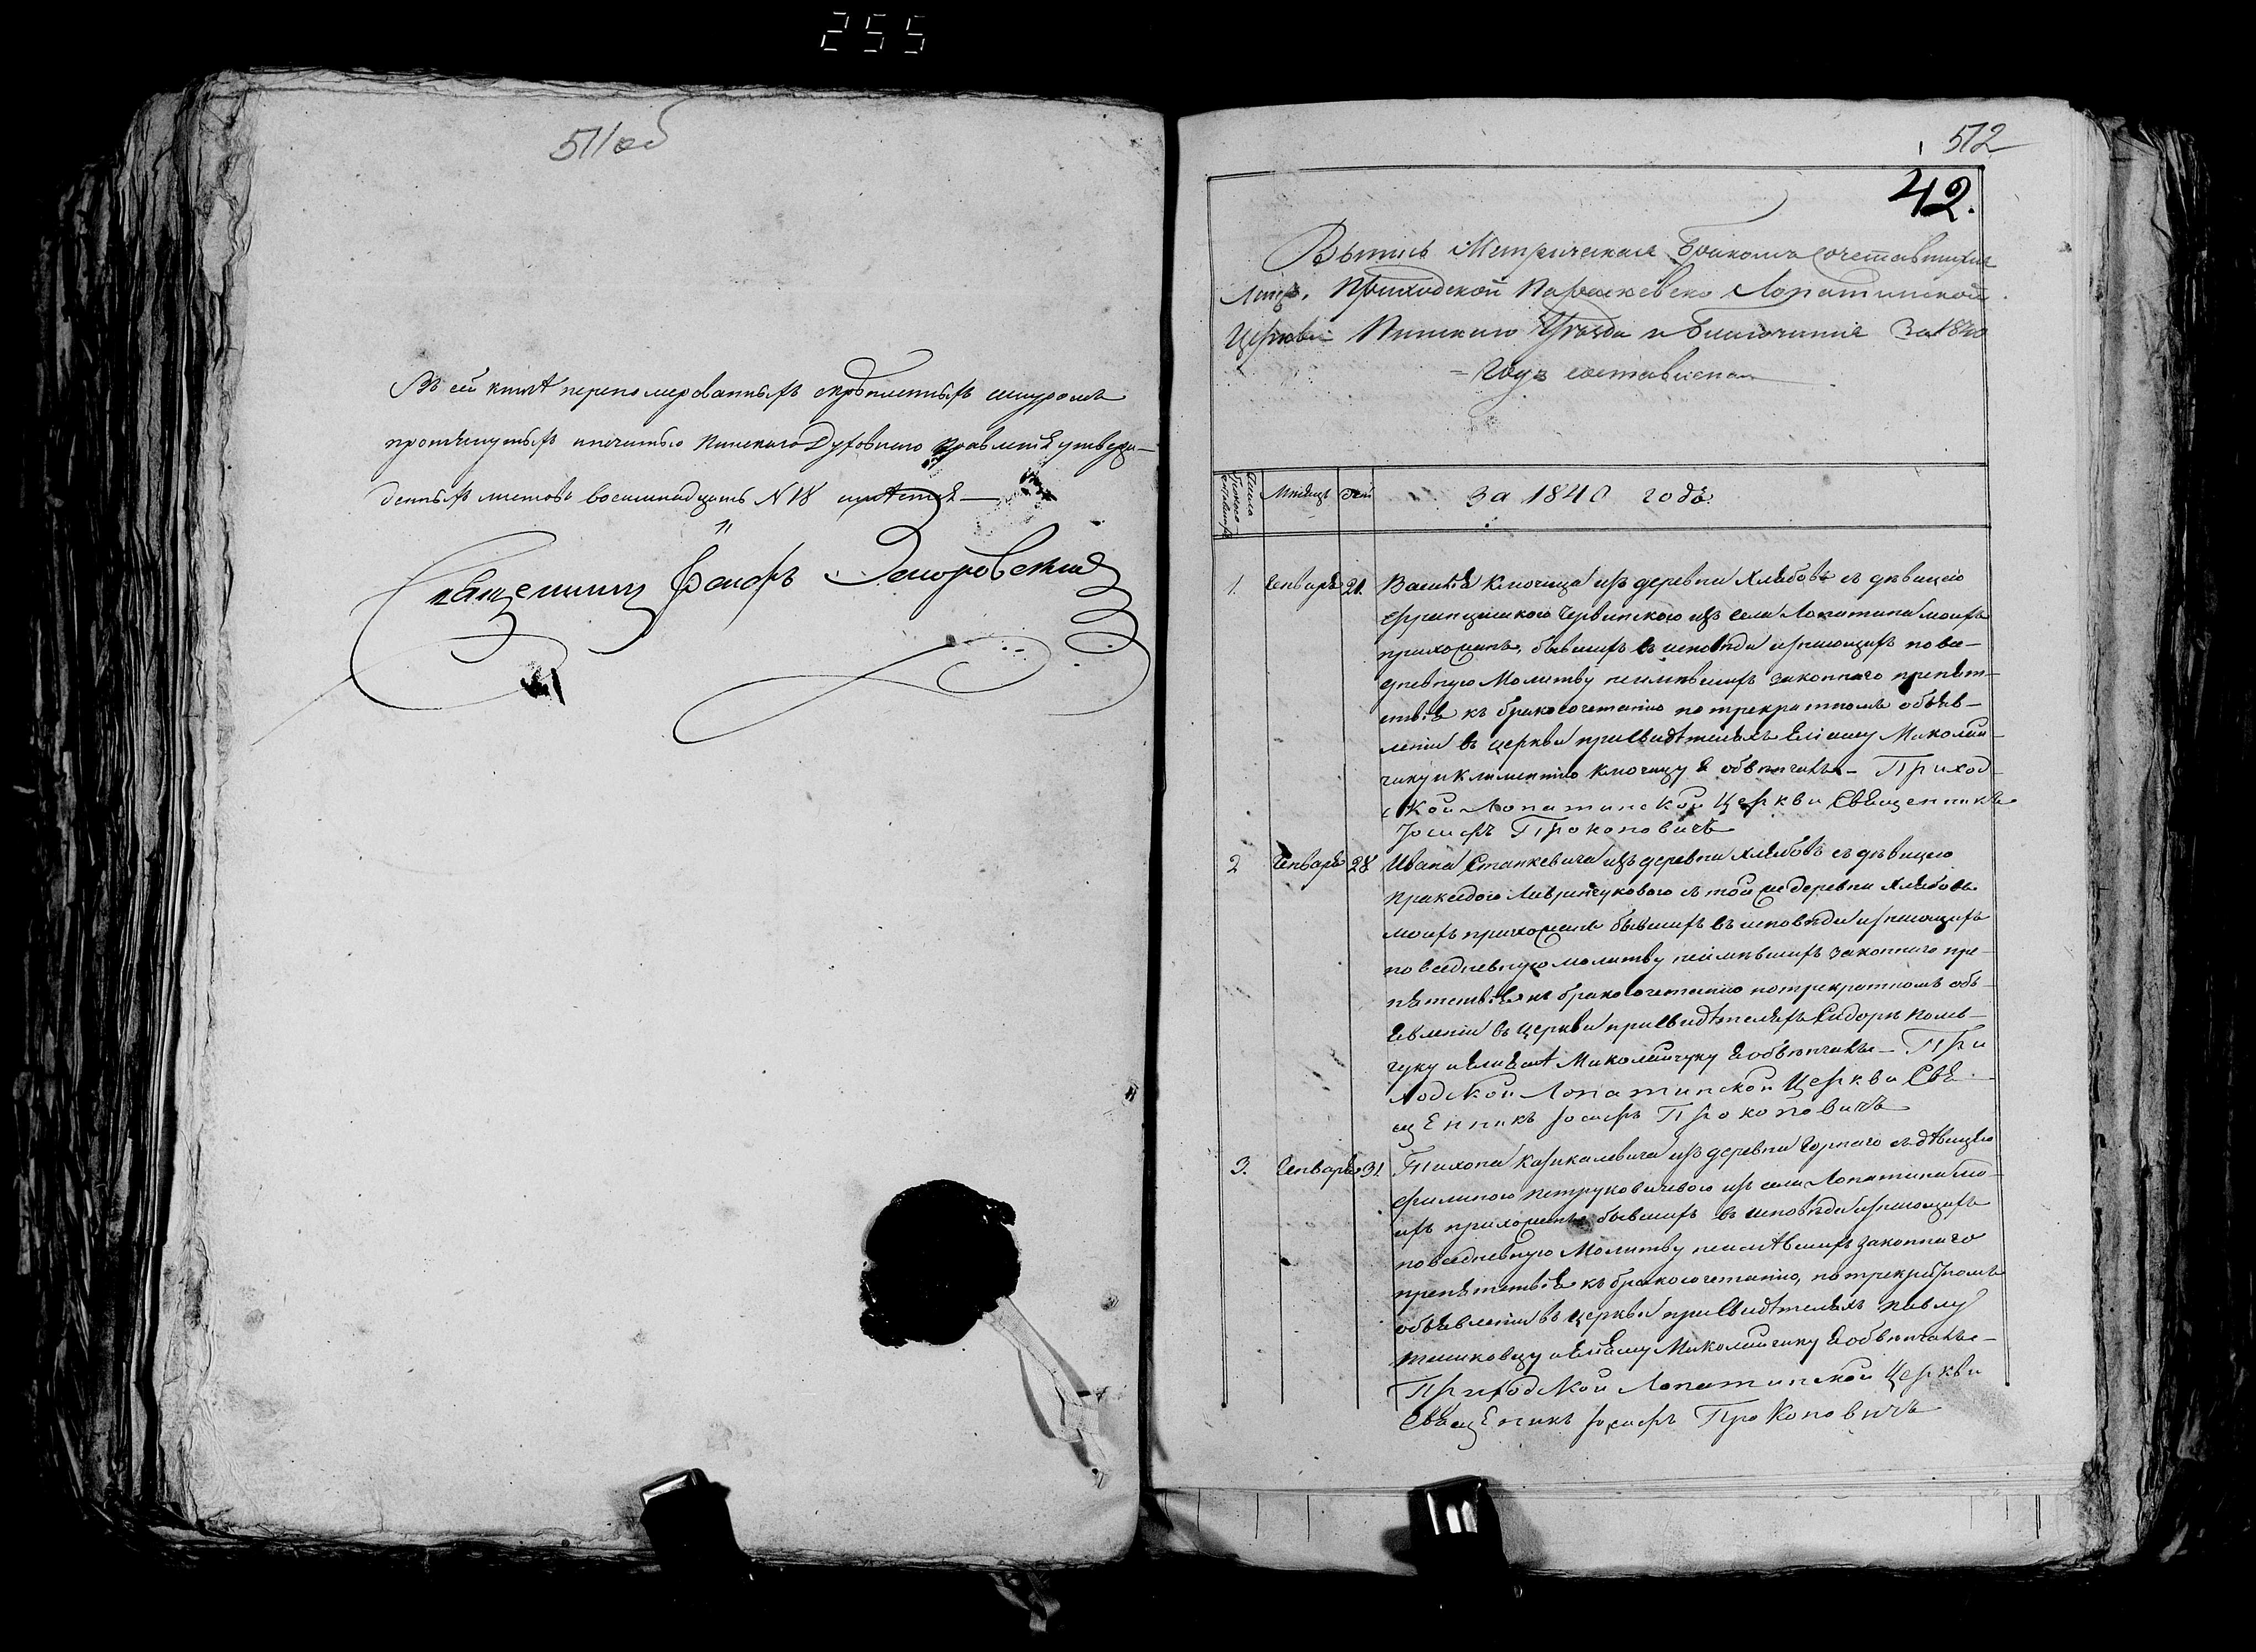 255
511 об
Въ сей книгѣ перенумерованныхъ скрѣпленныхъ шнуромъ
протянутыхъ и печатью Пинскаго Духовнаго Правленія утверж-
денныхъ листовъ восемнадцать N 18 имѣется —
Священникъ Іосифъ
512
42.
Выпись Метрическая Бракомъ Сочетавшихся
Лицъ. Приходской Параскевско Лопатинской
Церкви Пинскаго Уѣзда и Благочинія За 1840
= Годъ составлена
Число
Мѣсяцъ
дни
За 1840 годъ.
1. Генваря 21. Василія Ключица изъ деревни Хлябовъ съ дѣвицею
Францишкою Червинскою изъ села Лопатина моихъ
прихожанъ, бывшихъ въ исповѣди и знающихъ повсе-
дневную Молитву неимѣвшихъ законнаго препят-
ствія къ бракосочетанію по трекратномъ объяв-
леніи въ церкви при Свидѣтеляхъ Елісею Миколай-
чику и Климентію Ключицу я обвѣнчалъ - Приход-
ской Лопатинской Церкви Священникъ
Іосифъ Прокоповичъ
2 Генваря 28 Ивана Станкевича изъ деревни Хлябовъ съ дѣвицею
Пракседою Лавринчуковою съ той же деревни Хлябовъ
моихъ прихожанъ бывшихъ въ исповѣди и знающихъ
повседневную молитву неимѣвшихъ законнаго пре-
пятствія къ бракосочетанію по трекратномъ объ-
явленіи въ церкви при Свидѣтеляхъ Сидорѣ
чуку и Миколайчуку я обвѣнчалъ - При
ходской Лопатинской Церкви Свя
щенникъ Іосифъ Прокоповичъ
3. Генваря 31. Тихона изъ деревни Горнаго съ дѣвицею
Филипою Петруковичевою изъ села Лопатина мо-
ихъ прихожанъ бывшихъ въ исповѣди и знающихъ
повседневную Молитву неимѣвшихъ законнаго
препятствія къ бракосочетанію, по трекратномъ
объявленіи въ церкви при Свидѣтеляхъ Павлу
и Миколайчику я обвѣнчалъ -
Приходской Лопатинской Церкви
Священикъ Іосифъ Прокоповичъ